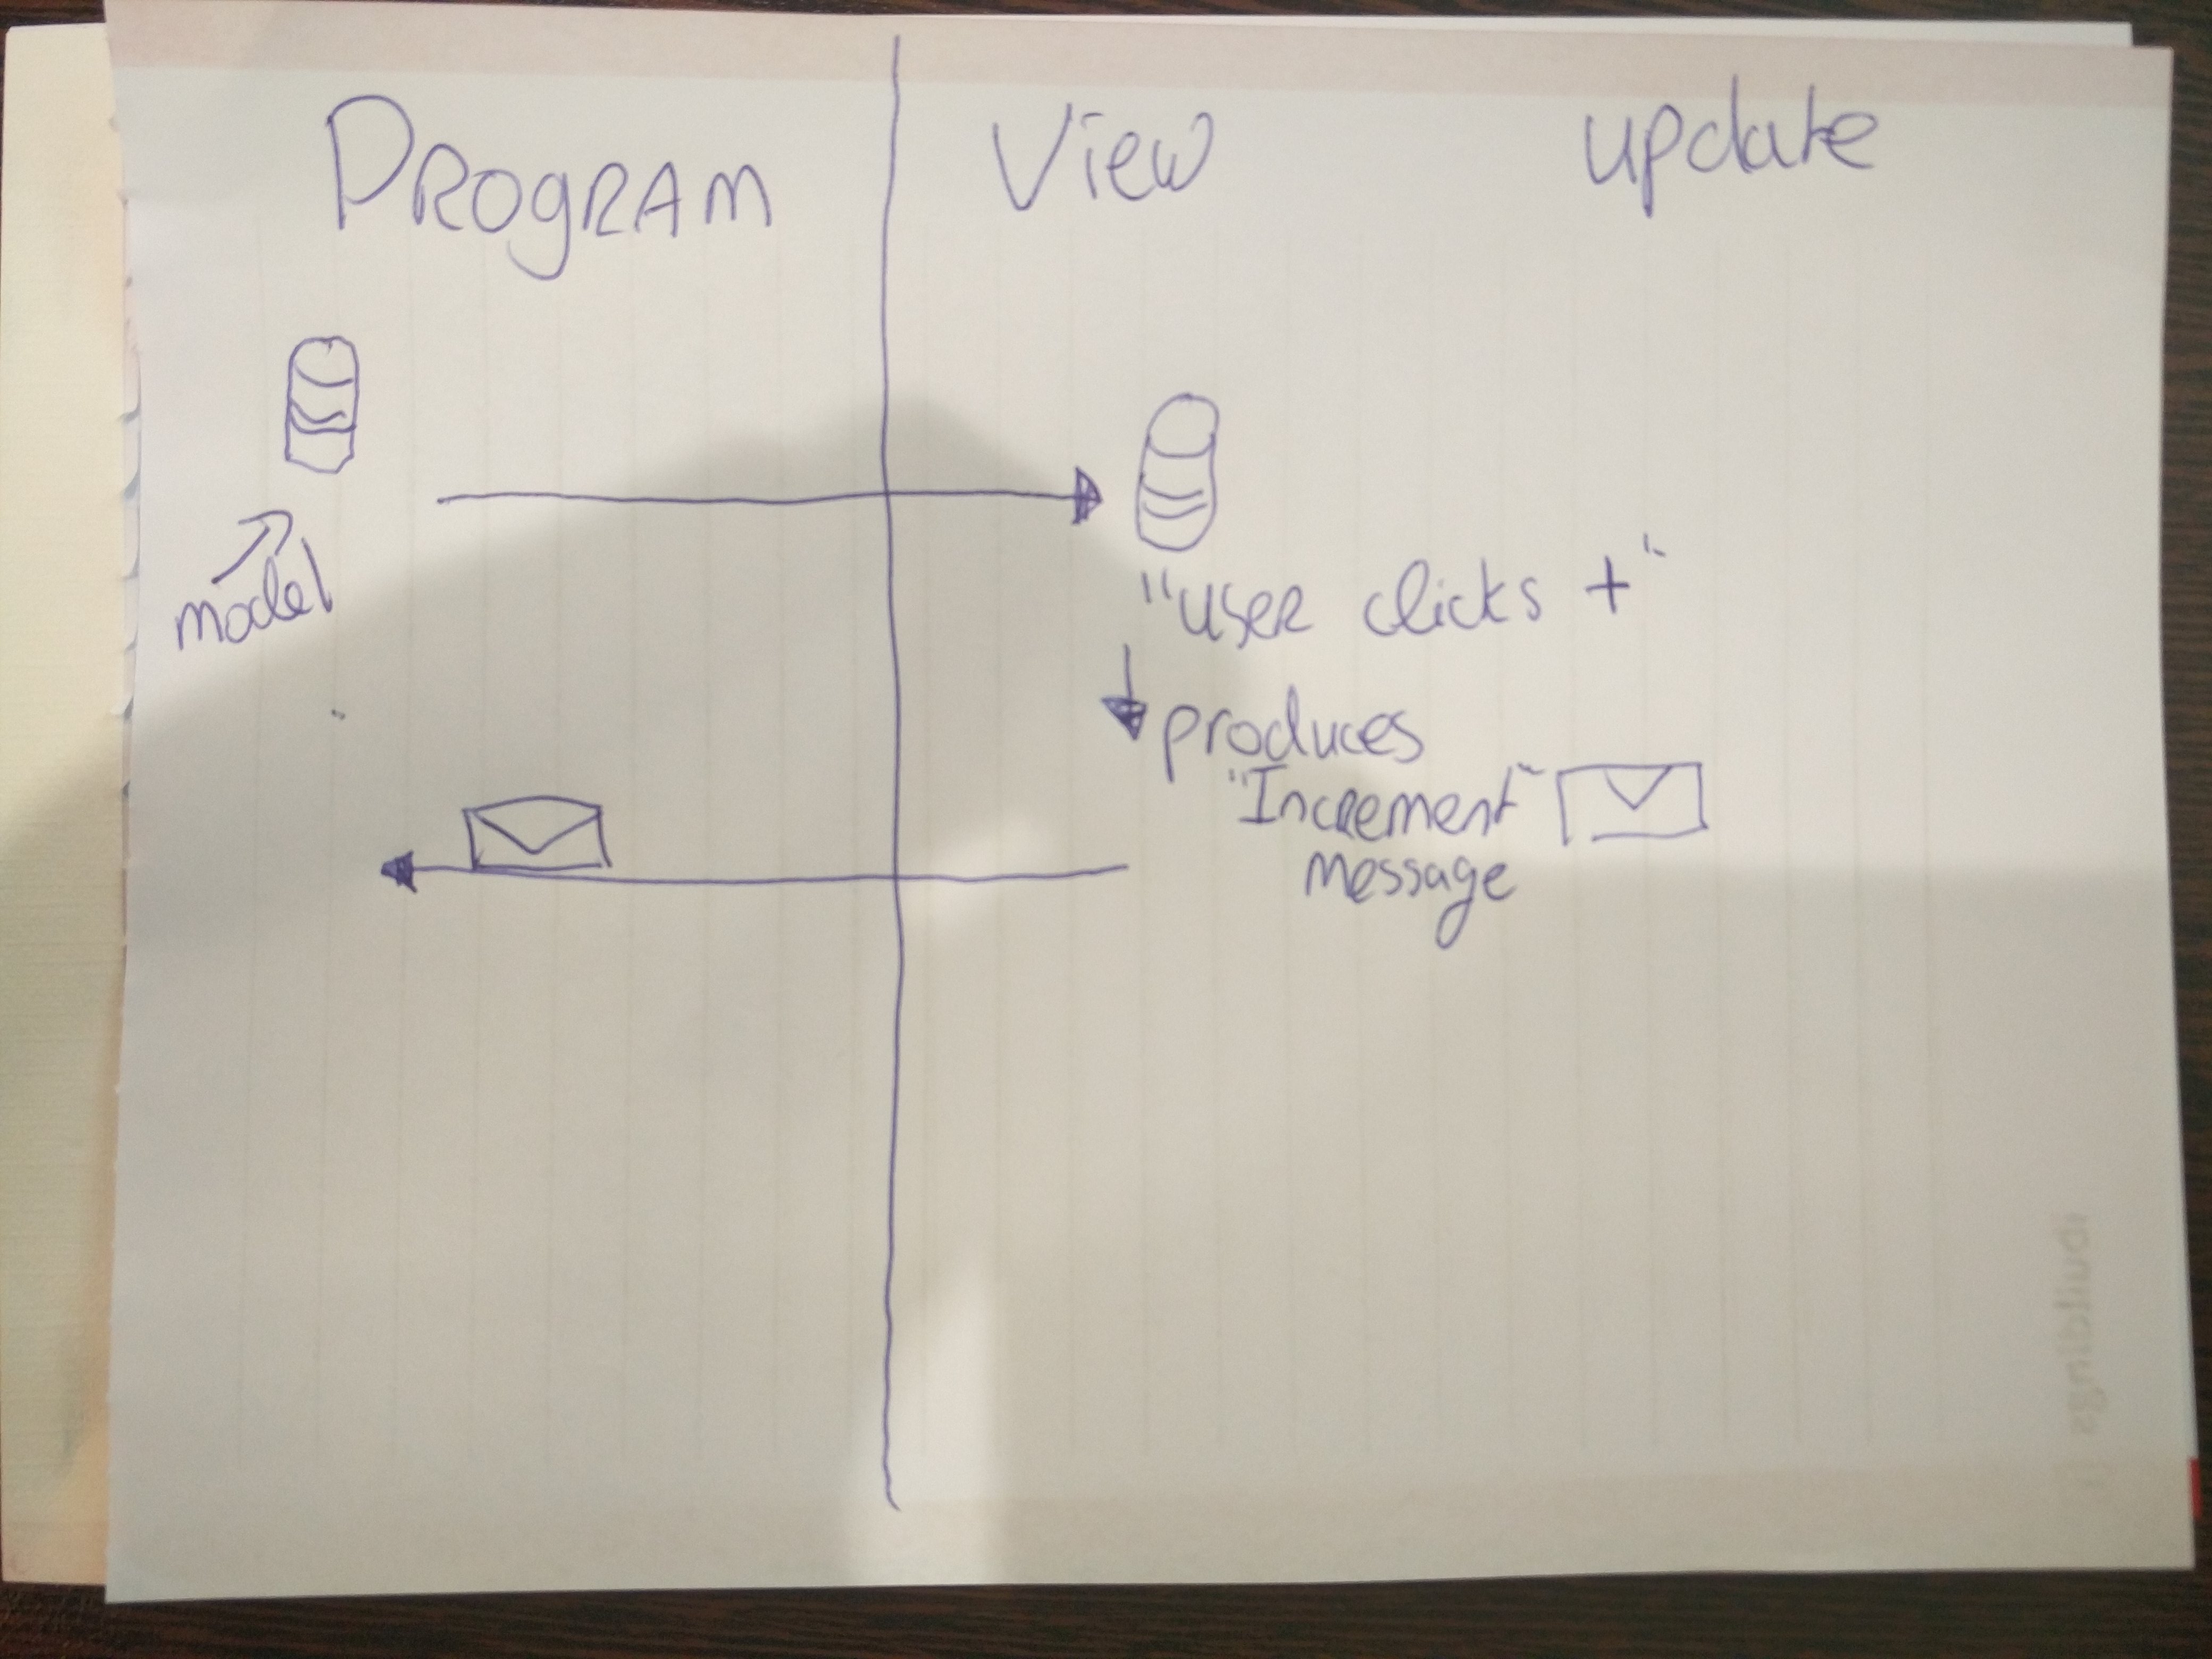 PROGRAM View update
model
"user clicks +"
produces
"Increment"
message
ibuildings